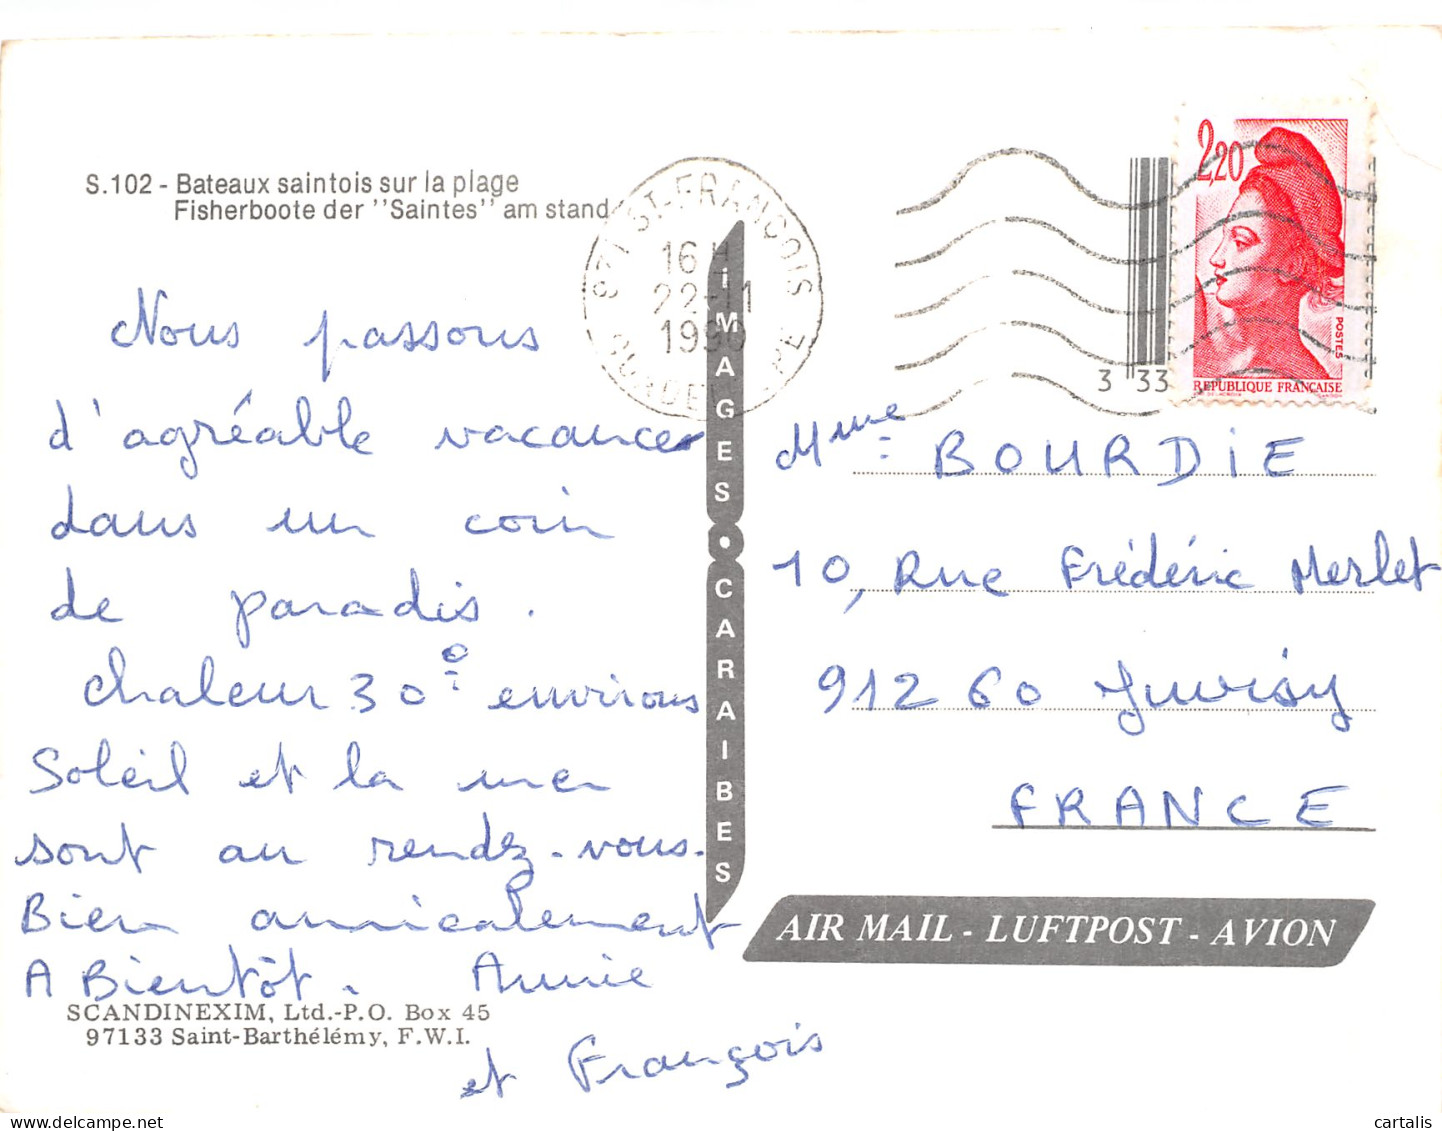 S.102 - Bateaux saintois sur la plage
Fisherboote der "Saintes" am stand
Nous passons
d'agréable vacances
dans un coin
de paradis.
Chaleur 30° environs
Soleil et la mer
sont au rendez-vous.
Bien amicalement
A Bientôt. Annie
et François
SCANDINEXIM, Ltd.-P.O. Box 45
97133 Saint-Barthélemy, F.W.I.
iMAGES • CARAIBES
971 ST-FRANCOIS
16 H
22-11
1990
GUADE
2,20
POSTES
REPUBLIQUE FRANÇAISE
3 33
Mme BOURDIE
10, Rue Frédéric Merlet
91260 Juvisy
FRANCE
AIR MAIL - LUFTPOST - AVION
delcampe.net
cartalis